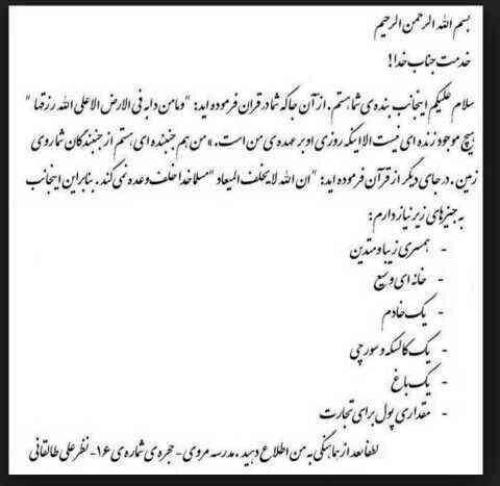 بسم الله الرحمن الرحیم
خدمت جناب خدا!
سلام علیکم اینجانب بنده ی شما هستم. از آن جا که شما در قران فرموده اید: "و ما من دابه فی الارض الا علی الله رزقها"
هیچ موجود زنده ای نیست الا اینکه روزی او بر عهده ی من است.» من هم جنبنده ای هستم از جنبندگان شما روی
زمین. در جای دیگر از قرآن فرموده اید: "ان الله لا یخلف المیعاد" مسلما خدا خلف وعده نمی کند. بنابراین اینجانب
به چیزهای زیر نیاز دارم:
- همسری زیبا و متدین
- خانه ای وسیع
- یک خادم
- یک کالسکه و سورچی
- یک باغ
- مقداری پول برای تجارت
لطفا بعد از هماهنگی به من اطلاع دهید. مدرسه مروی - حجره ی شماره ی ۱۶ - نظر علی طالقانی